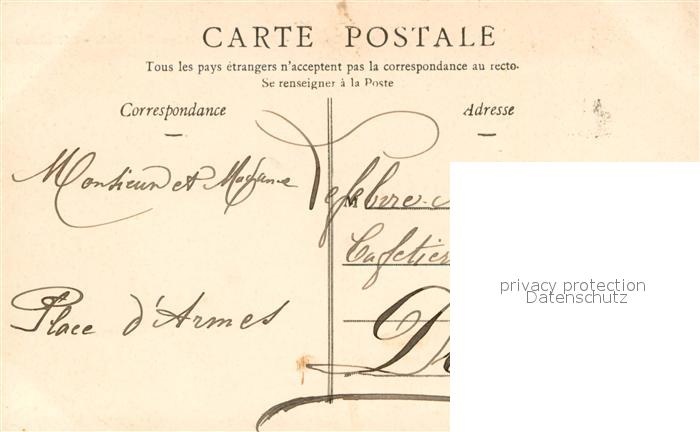 CARTE POSTALE
Tous les pays étrangers n'acceptent pas la correspondance au recto.
Se renseigner à la Poste
Correspondance
Adresse
Monsieur et Madame Lefebvre
M
Cafetier
Place d'Armes
privacy protection
Datenschutz